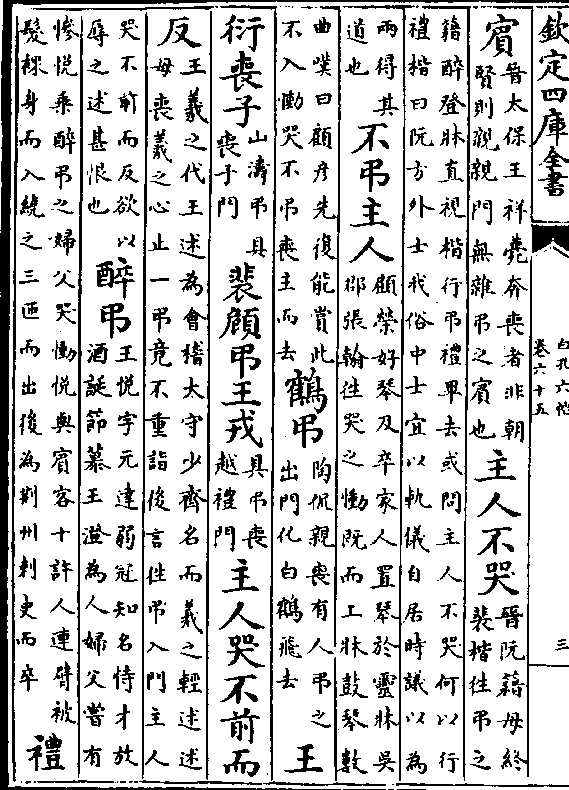 欽定四庫全書
白孔六帖
卷六十五
三
賓
晉太保王祥薨奔喪者非朝
賢則親親門無雜弔之賓也
主人不哭
晉阮籍母終
裴楷往弔之
籍醉登牀直視楷行弔禮畢去或問主人不哭何以行
禮楷曰阮方外士我俗中士宜以軌儀自居時議以為
兩得其
道也
不弔主人
顧榮好琴及卒家人置琴於靈牀吳
郡張翰往哭之慟既而上牀鼓琴數
曲嘆曰顧彥先復能賞此
不入慟哭不弔喪主而去
鶴弔
陶侃親喪有人弔之
出門化白鶴飛去
王
衍喪子
山濤弔具
喪子門
裴顧弔王戎
具弔喪
越禮門
主人哭不前而
反
王羲之代王述為會稽太守少齊名而羲之輕述述
母喪羲之心止一弔竟不重詣後言往弔入門主人
哭不前而反欲以
辱之述甚恨也
醉弔
王悅字元達弱冠知名恃才放
酒誕節慕王澄為人婦父嘗有
慘悅乘醉弔之婦父哭慟悅與賓客十許人連臂被
髮裸身而入繞之三匝而出後為荆州刺史而卒
禮